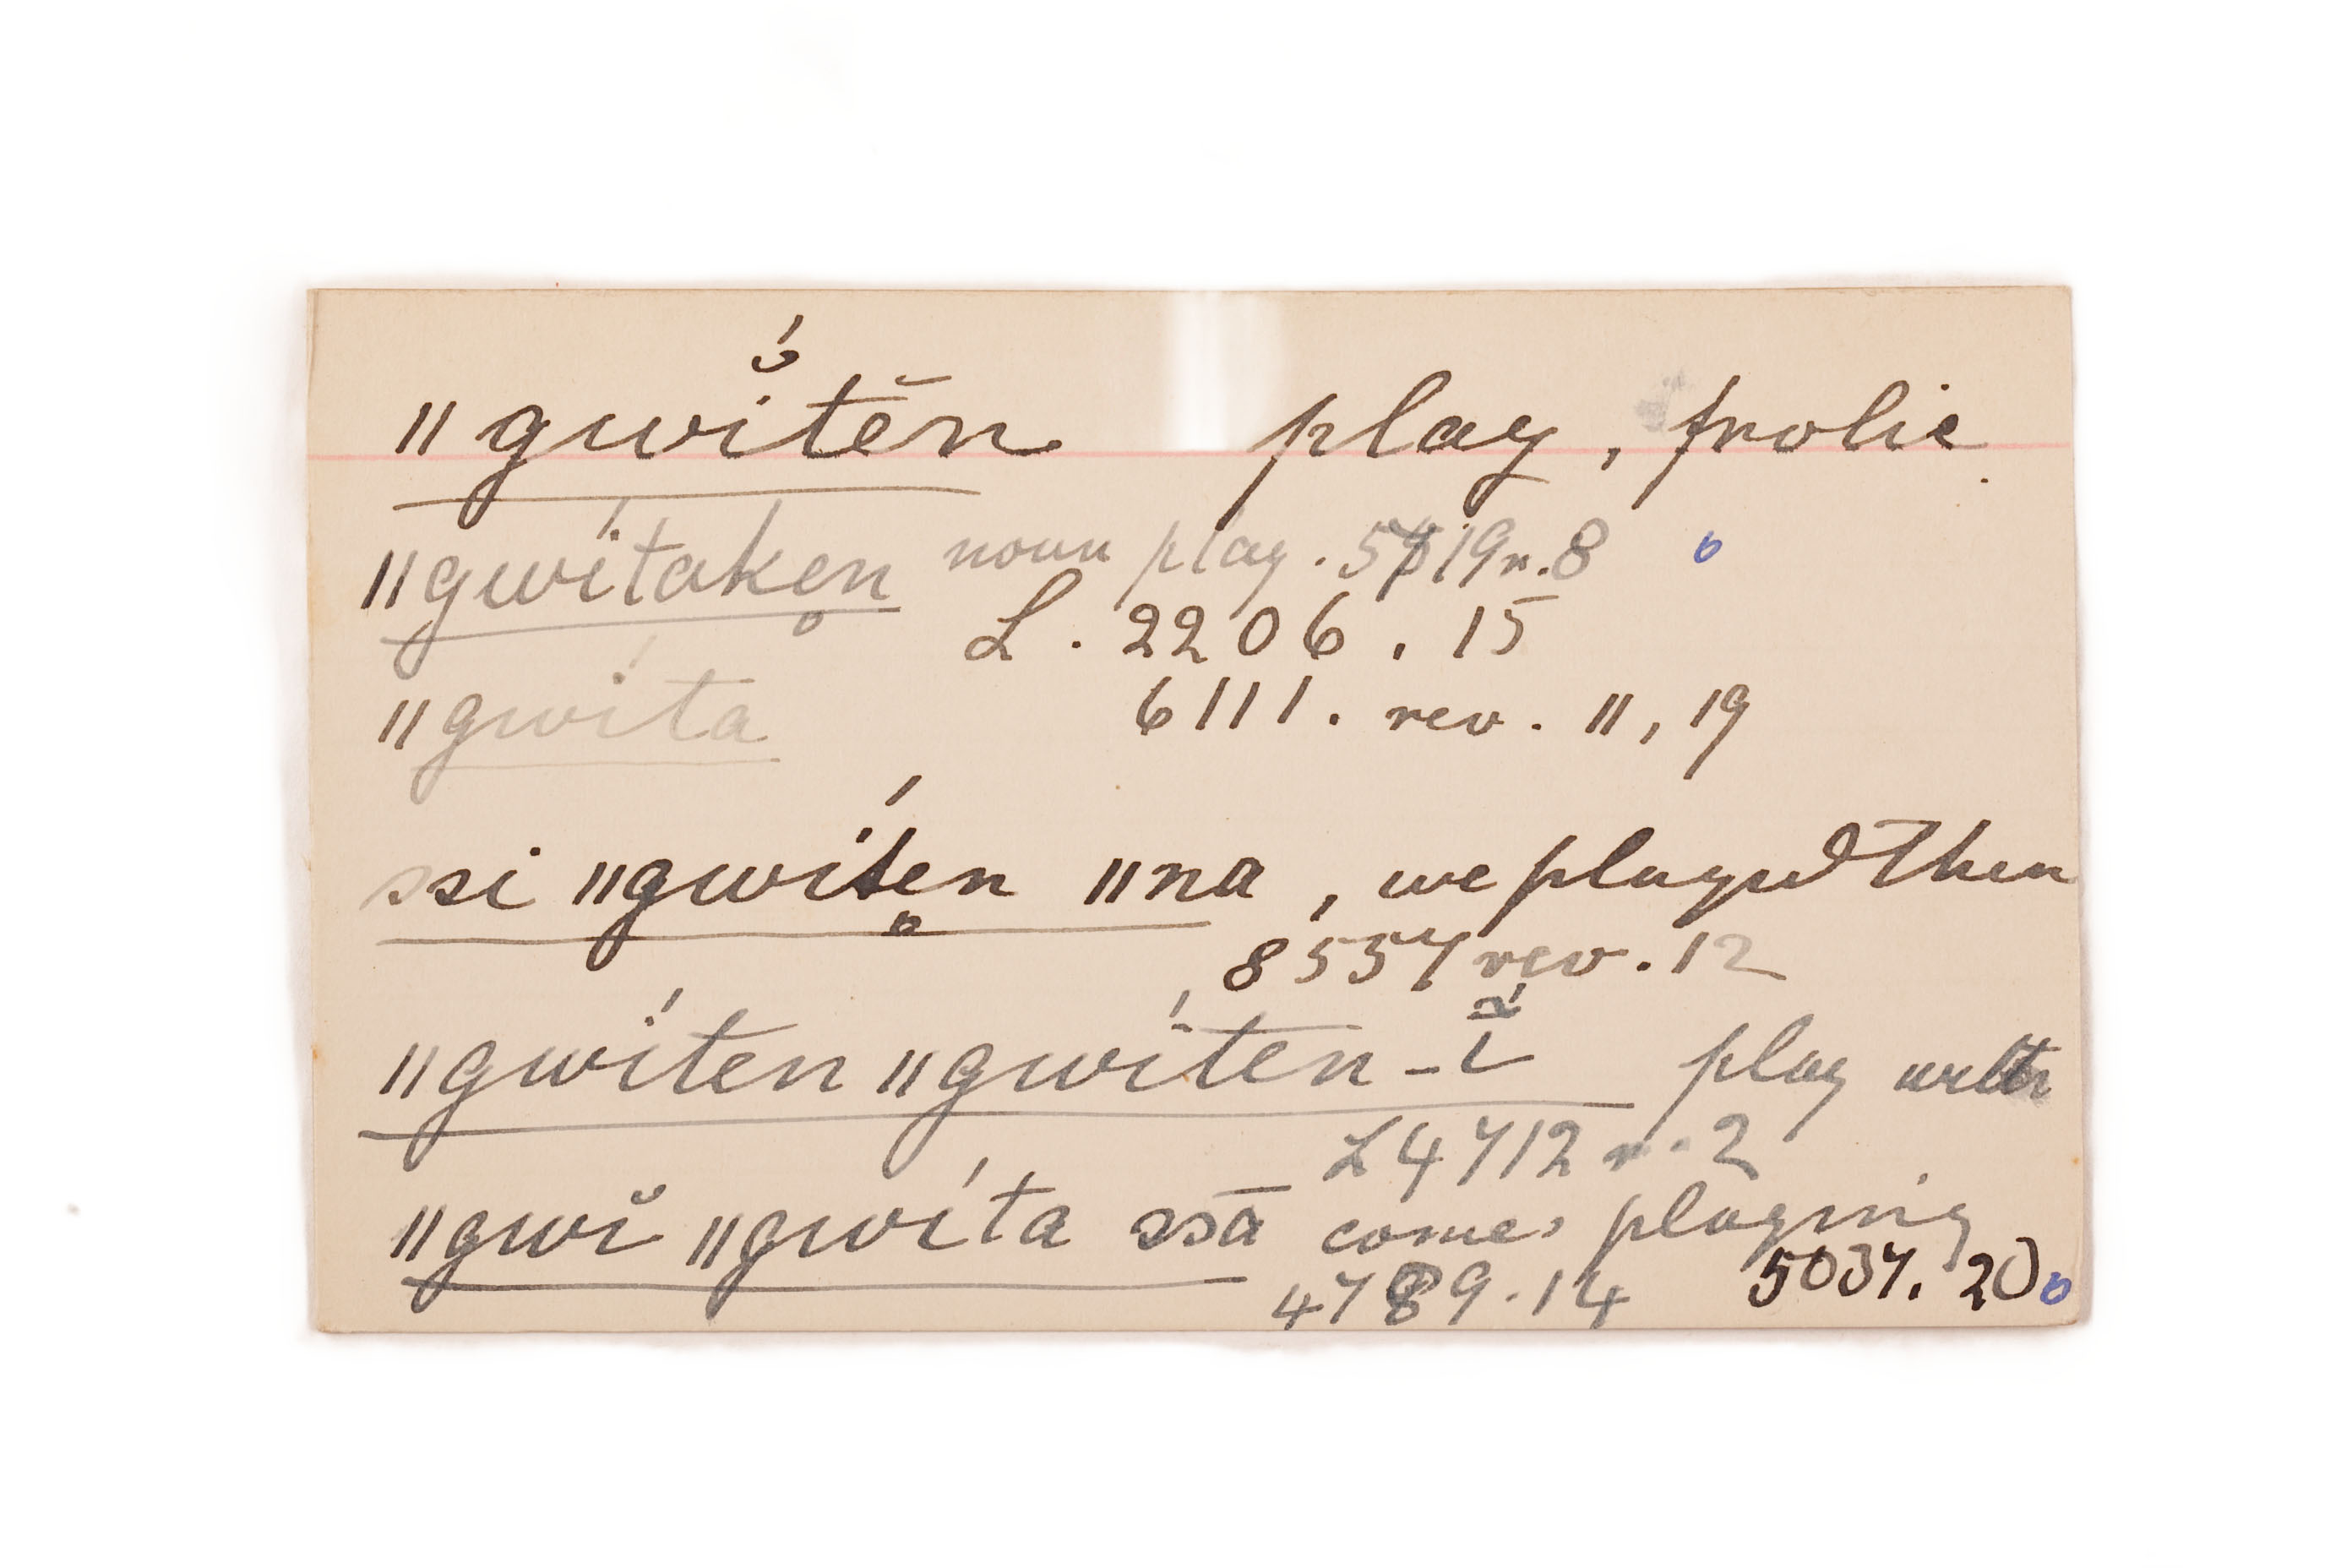 ǁgwĭ́tĕn play, frolic.
ǁgwítakẹn noun play. 5819n.8
L. 2206. 15
ǁgwíta 6111. rev. 11, 19
ssi ǁgwítẹn ǁna, we played then
8557 rev. 12
ǁgwíten ǁgwíten-ī play with
L 4712 n. 2
ǁgwĭ ǁgwíta ssā comes playing
4789.14 5037. 20